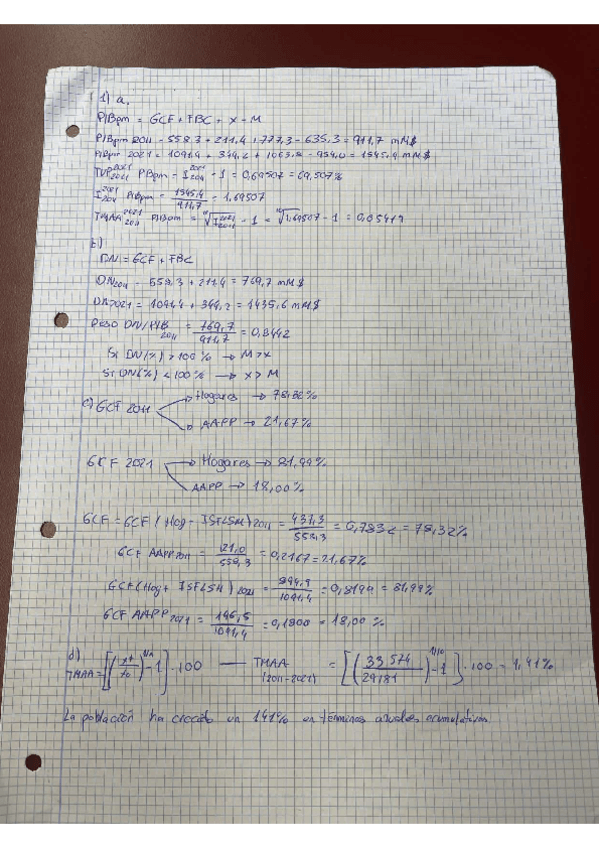 1) a.
PIBpm = GCF + FBC + X - M
PIBpm 2011 = 558,3 + 211,4 + 777,3 - 635,3 = 911,7 mM$
PIBpm 2021 = 1091,4 + 344,2 + 1063,8 - 954,0 = 1545,4 mM$
TVP 2021 2011 PIBpm = I 2021 2011 - 1 = 0,69507 = 69,507%
I 2021 2011 PIBpm = 1545,4 / 911,7 = 1,69507
TMAA 2021 2011 PIBpm = ¹⁰√I 2021 2011 - 1 = ¹⁰√1,69507 - 1 = 0,05419
b)
DN = GCF + FBC
DN2011 = 558,3 + 211,4 = 769,7 mM$
DN2021 = 1091,4 + 344,2 = 1435,6 mM$
Peso DN/PIB 2011 = 769,7 / 911,7 = 0,8442
Si DN(%) > 100% → M > X
Si DN(%) < 100% → X > M
c) GCF 2011 → Hogares → 78,32%
→ AAPP → 21,67%
GCF 2021 → Hogares → 81,99%
→ AAPP → 18,00%
GCF = GCF (Hog + ISFLSH) 2011 = 437,3 / 558,3 = 0,7832 = 78,32%
GCF AAPP 2011 = 121,0 / 558,3 = 0,2167 = 21,67%
GCF (Hog + ISFLSH) 2021 = 894,9 / 1091,4 = 0,8199 = 81,99%
GCF AAPP 2021 = 196,5 / 1091,4 = 0,1800 = 18,00 %
d) TMAA = [(xt / x0)^1/n - 1] · 100 — TMAA (2011-2021) = [(33574 / 29181)^1/10 - 1] · 100 = 1,41%
La población ha crecido un 1,41% en términos anuales acumulativos